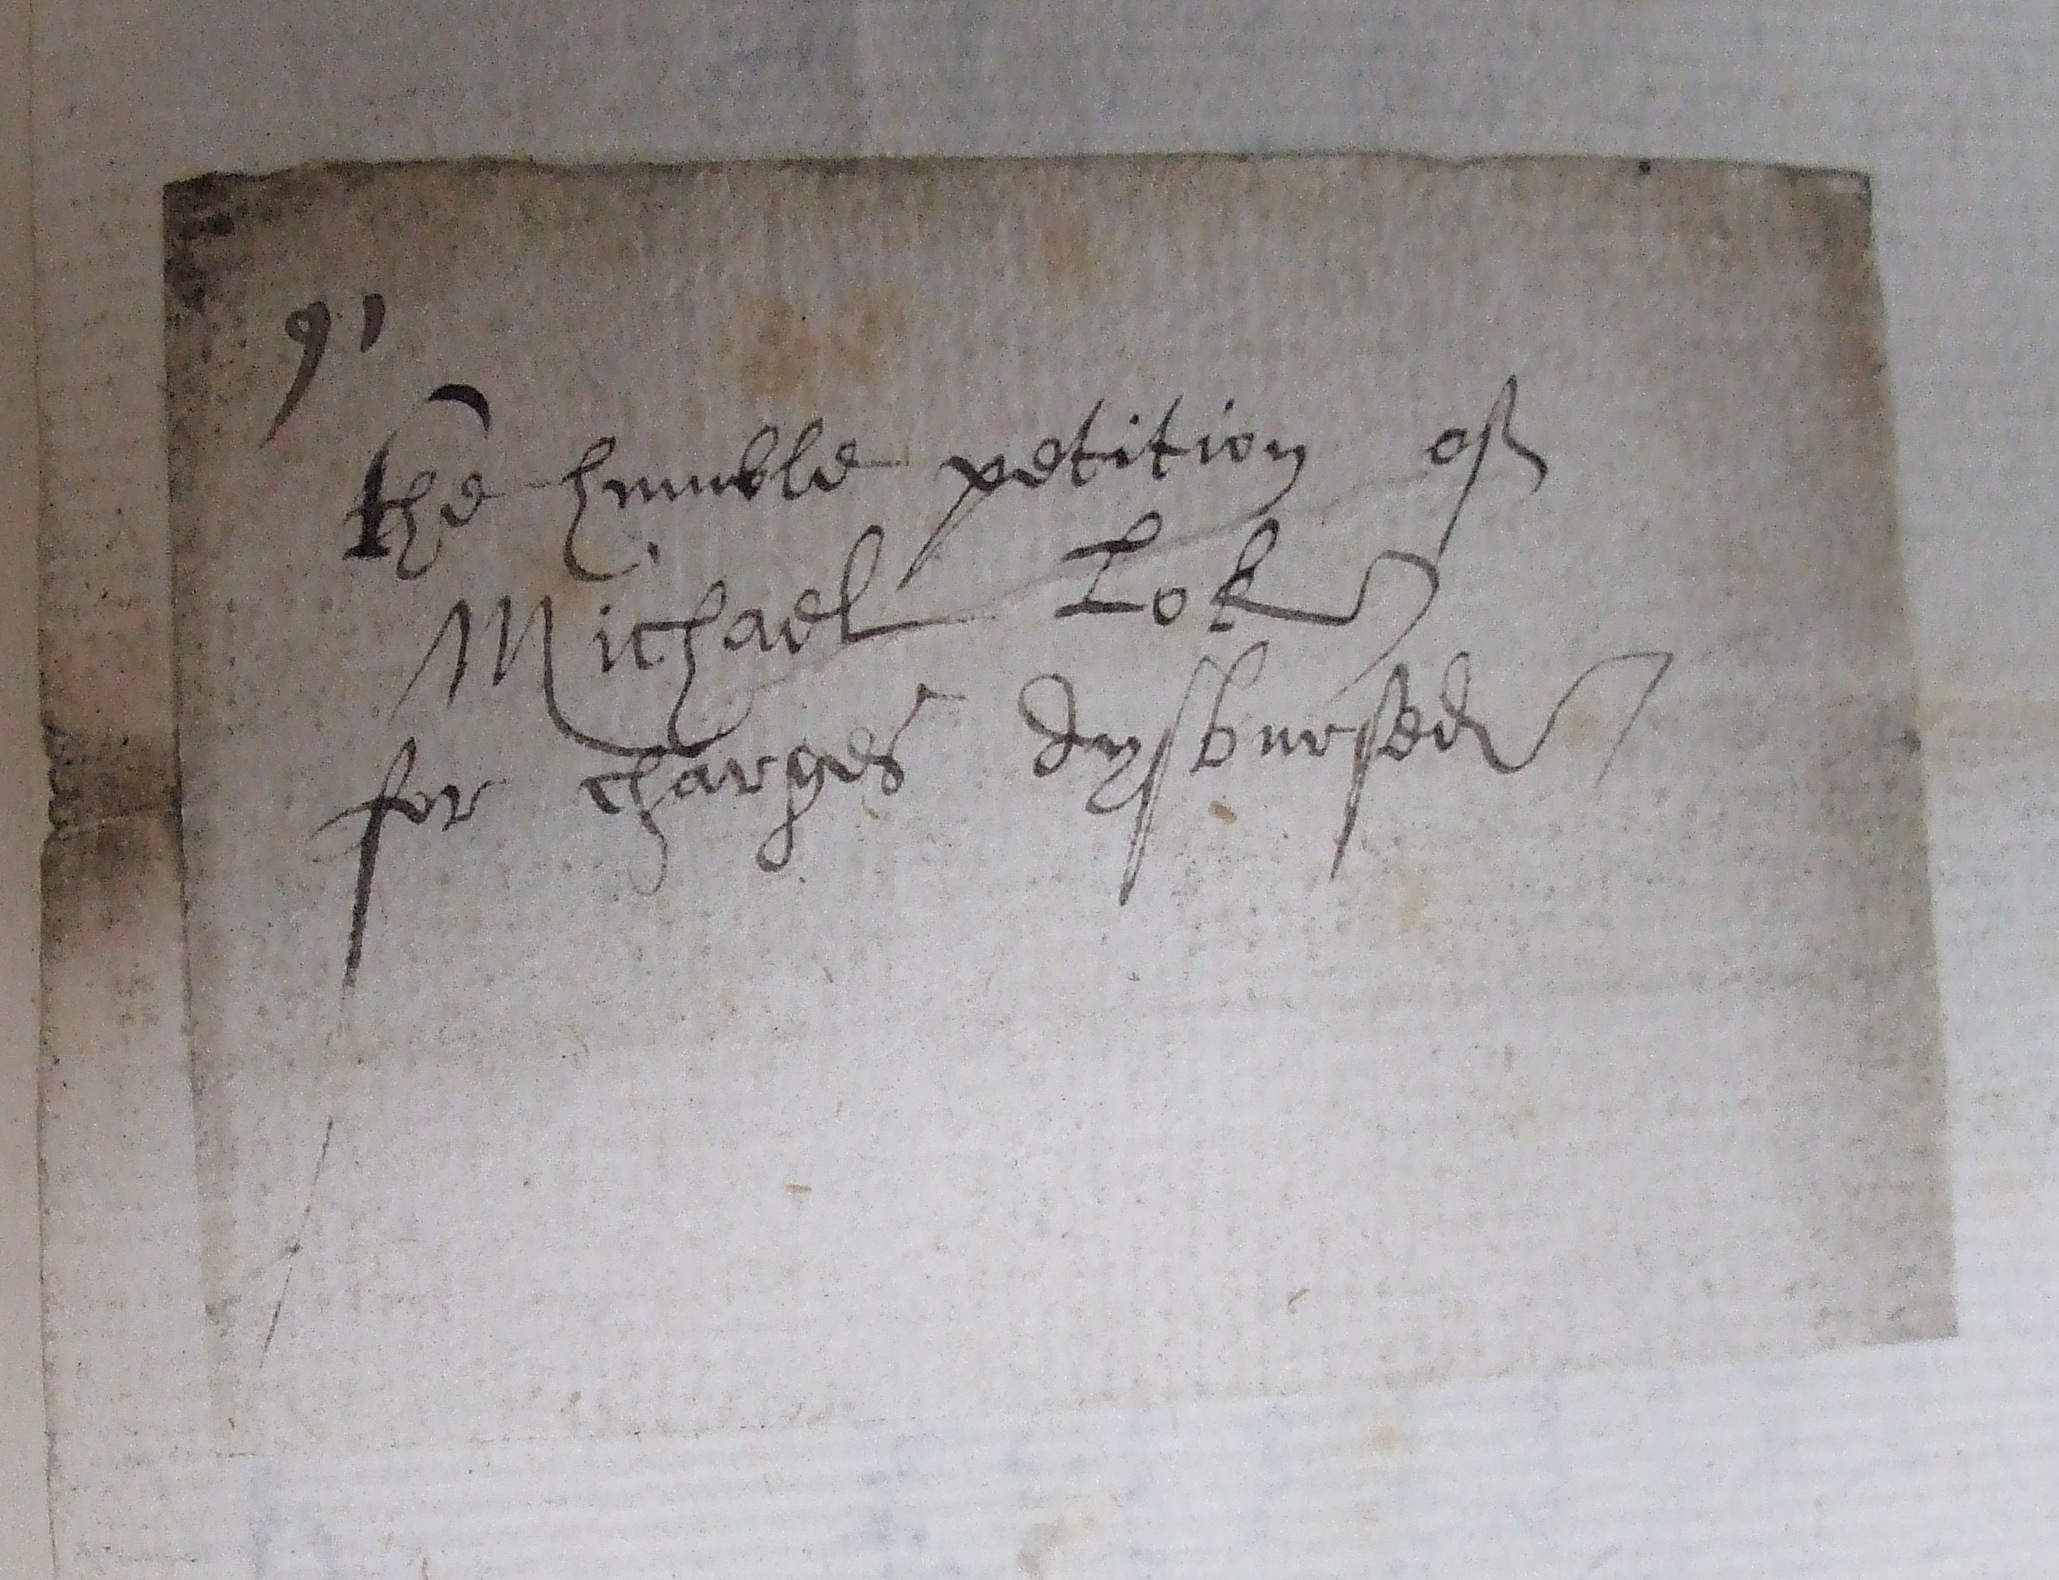 91
The humble petition of
Michael Lok
for charges dysbursed